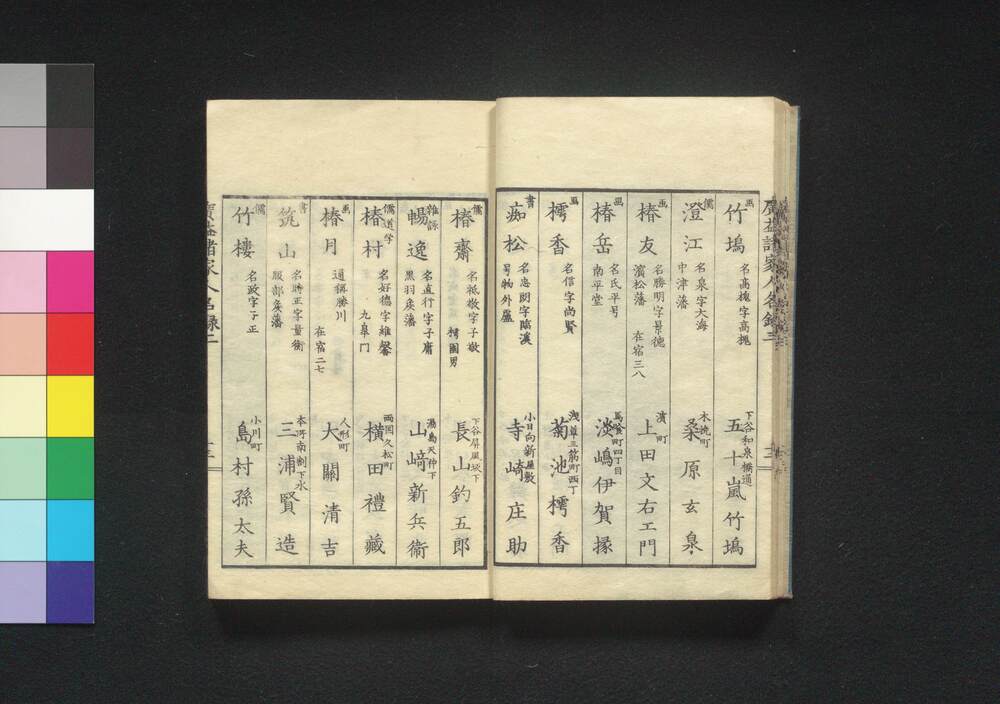 画
竹塢
名高槐字高槐
下谷和泉橋通
五十嵐竹塢
儒
澄江
名泉字大海
中津藩
木挽町
桑原玄泉
画
椿友
名勝明字景德
濱松藩 在宿三八
濱町
上田文右エ門
画
椿岳
名氏平号
南平堂
馬喰町四丁目
淡嶋伊賀掾
画
樗香
名信字尚賢
浅草三筋町西丁
菊池樗香
書
痴松
名忠 字臨溪
号物外廬
小日向新屋敷
寺崎庄助
儒
椿齋
名祗敬字子敬
下谷屏風坂下
長山釣五郎
雜詠
暢逸
名直行字子庸
黒羽矦藩
湯島天神下
山﨑新兵衛
儒道学
椿村
名好德字維馨
九皐門
両国久松町
横田禮藏
画
椿月
通稱勝川
在宿二七
人形町
大關清吉
書
筑山
名勝正字量衡
服部矦藩
本所南割下水
三浦賢造
儒
竹樓
名政字子正
小川町
島村孫太夫
廣益諸家人名録二
十三